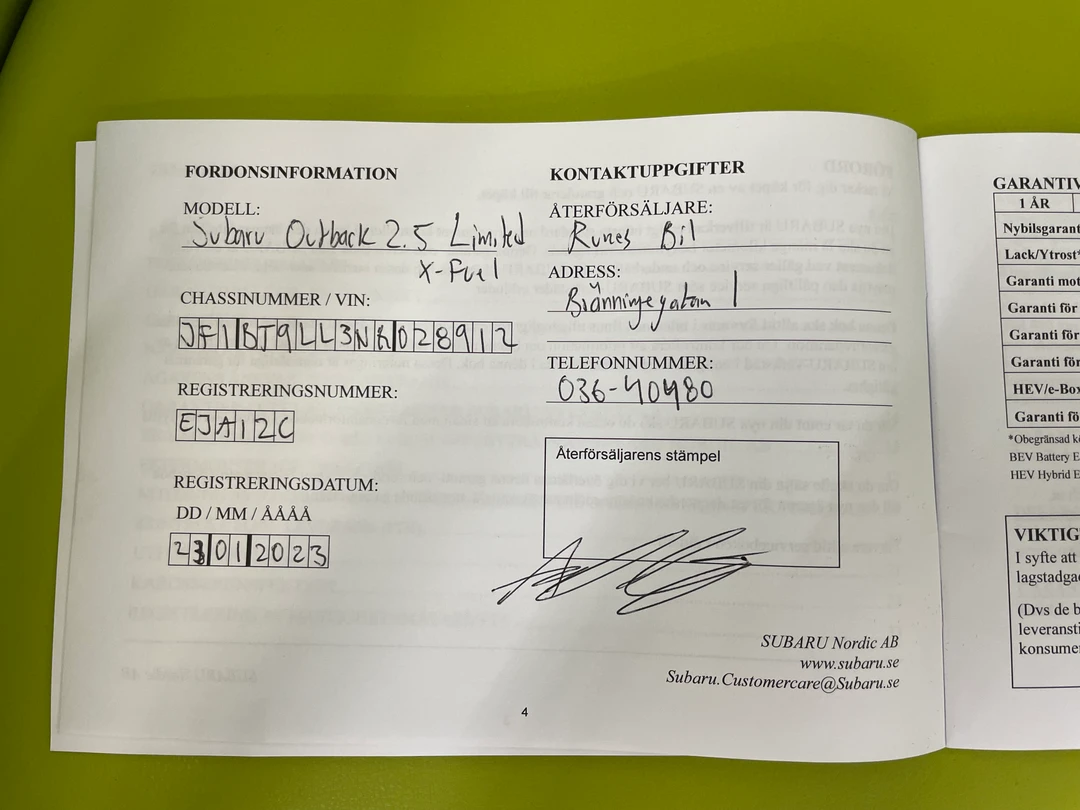 FORDONSINFORMATION
MODELL:
Subaru Outback 2.5 Limited
X-Fuel
CHASSINUMMER / VIN:
JF1BT9LL3NR028912
REGISTRERINGSNUMMER:
EJA12C
REGISTRERINGSDATUM:
DD / MM / ÅÅÅÅ
23012023
KONTAKTUPPGIFTER
ÅTERFÖRSÄLJARE:
Runes Bil
ADRESS:
Bränningegatan 1
TELEFONNUMMER:
036-40480
Återförsäljarens stämpel
SUBARU Nordic AB
www.subaru.se
Subaru.Customercare@Subaru.se
4
GARANTIV
1 ÅR
Nybilsgarant
Lack/Ytrost*
Garanti mot
Garanti för
Garanti för
Garanti för
HEV/e-Box
Garanti fö
*Obegränsad k
BEV Battery E
HEV Hybrid E
VIKTIG
I syfte att
lagstadga
(Dvs de b
leveransti
konsume